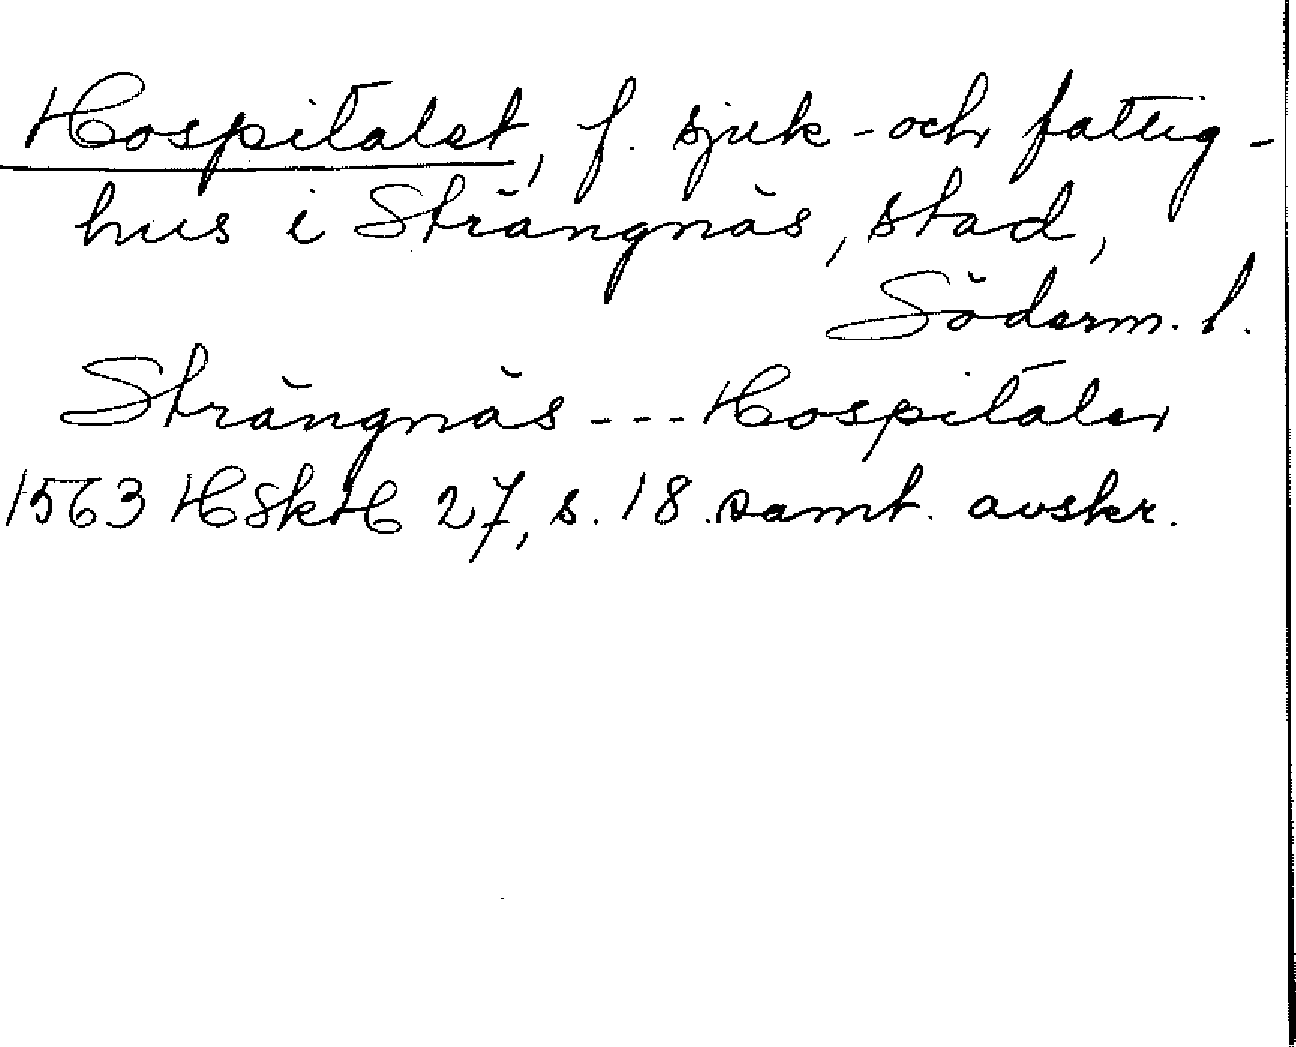 Hospitalet, f. sjuk- och fattig-
hus i Strängnäs, stad,
Söderm. l.
Strängnäs --- Hospitaler
1563 HSkH 27, s. 18. samt. avskr.